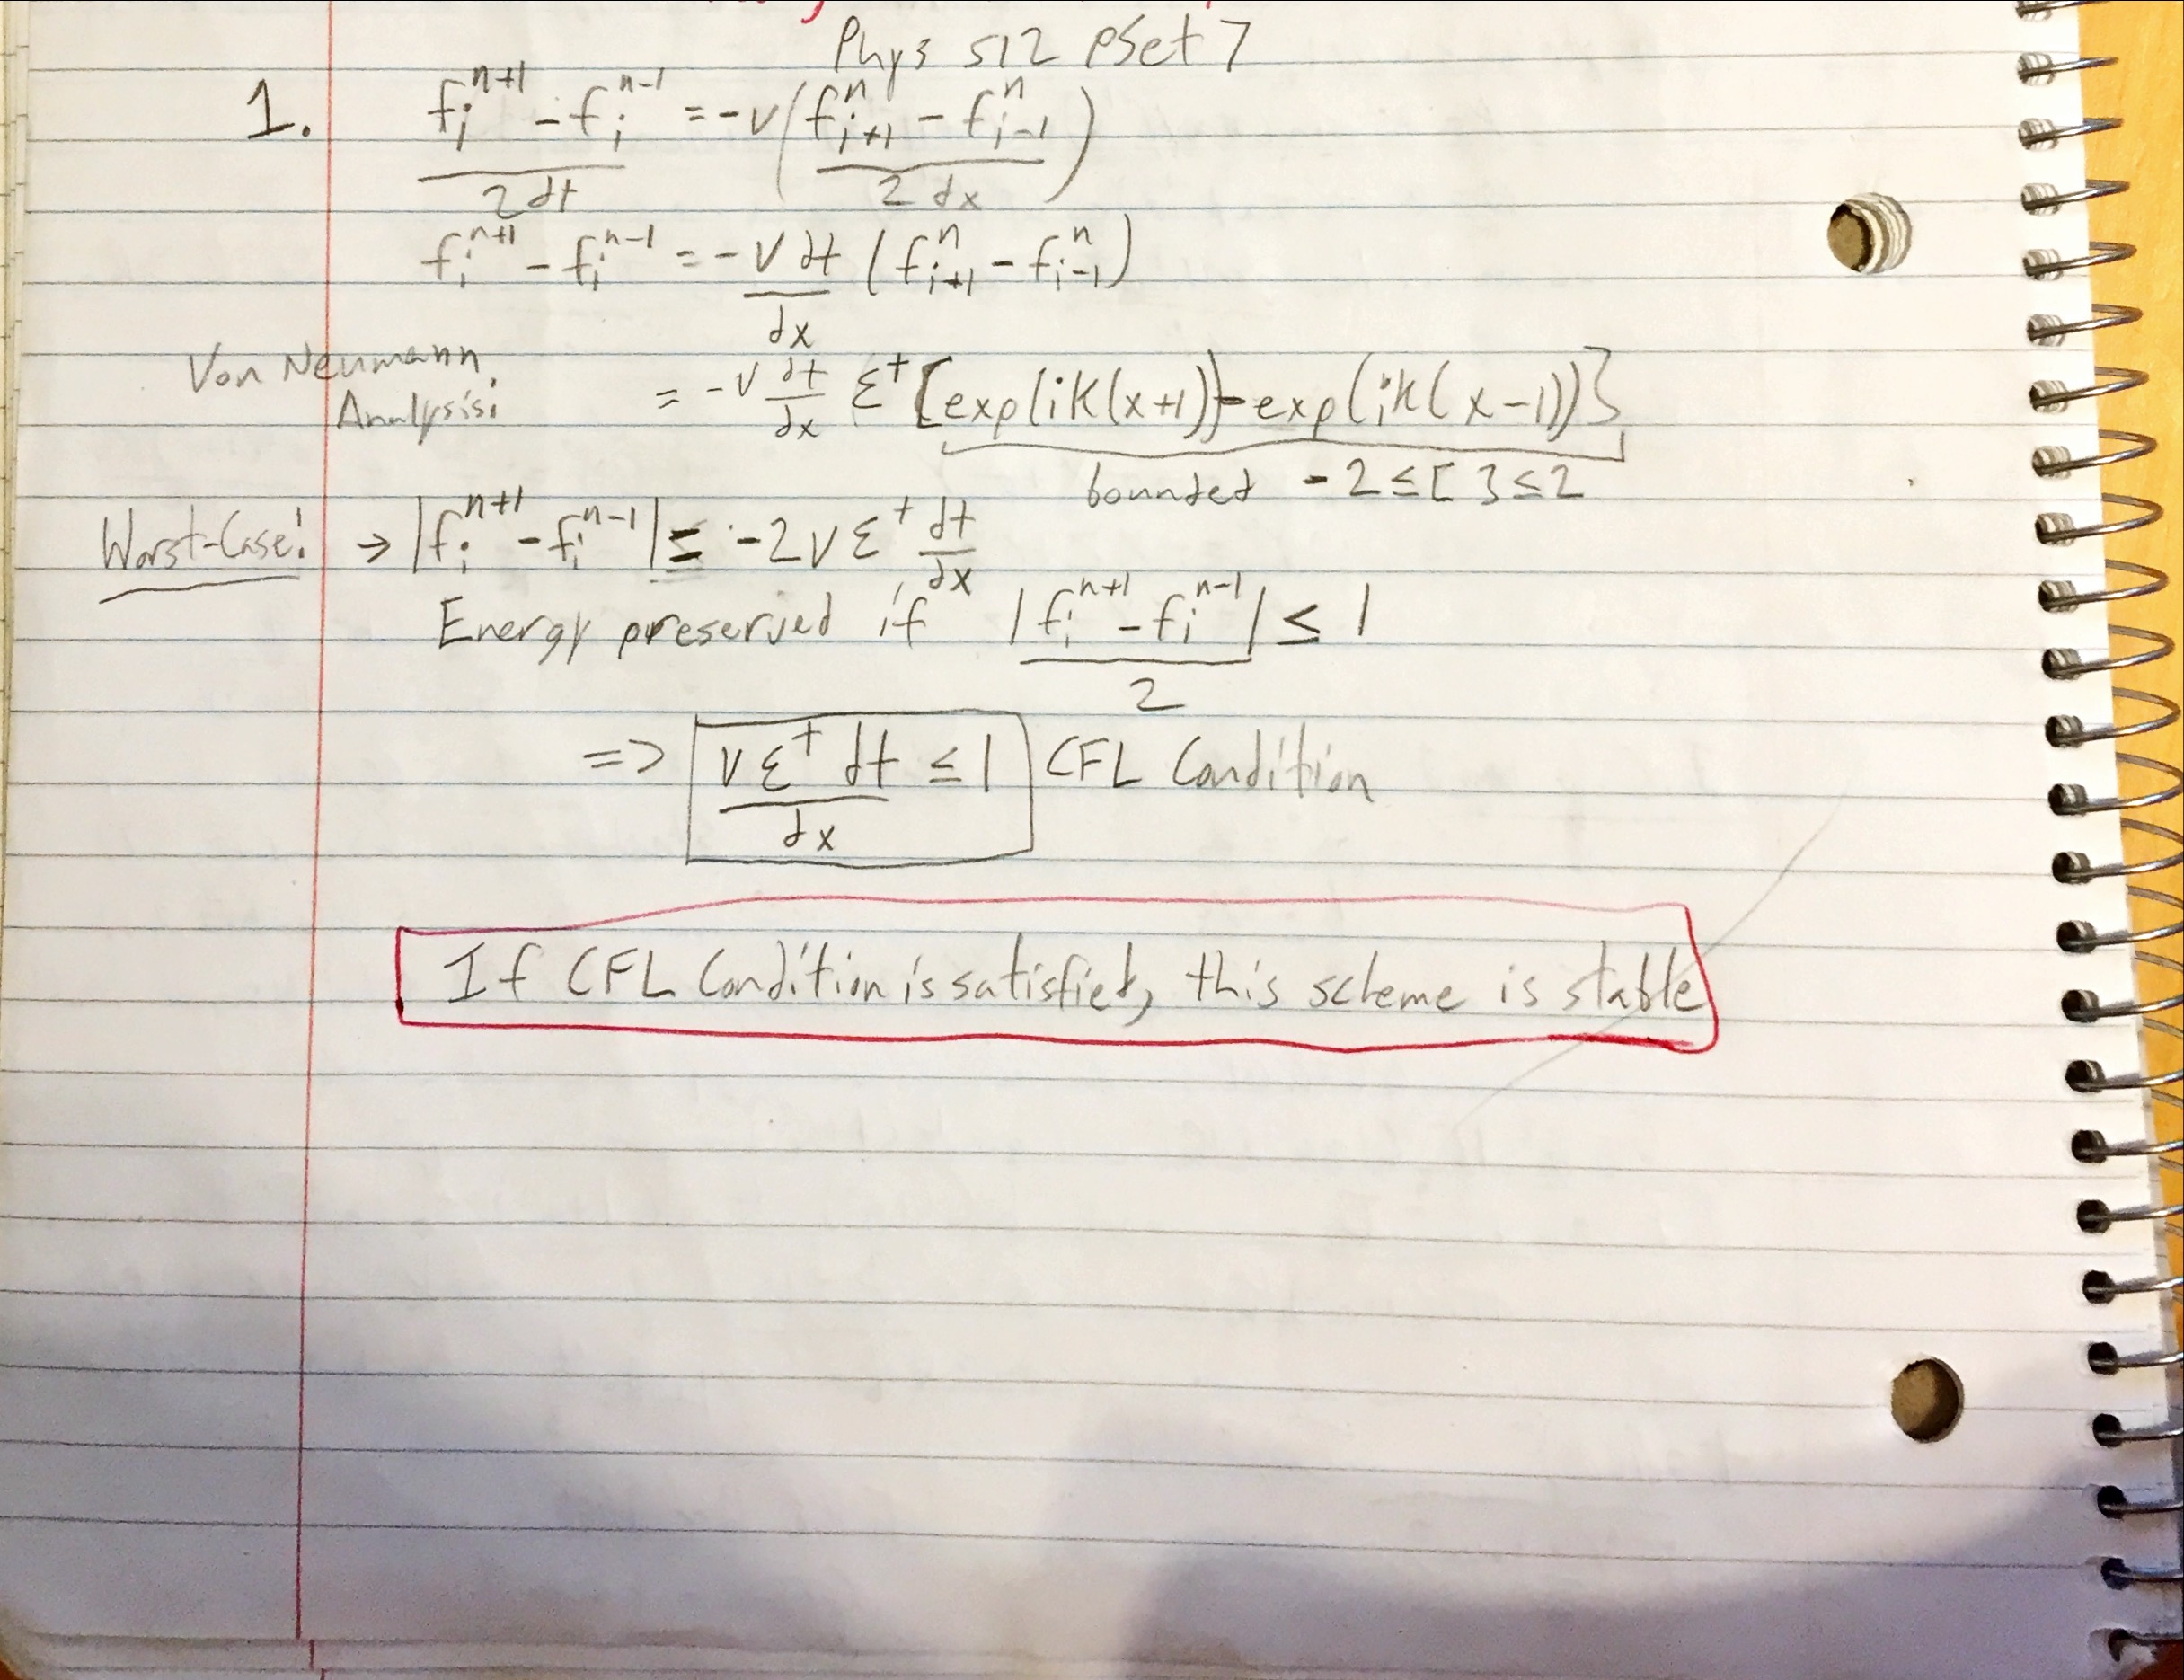 Phys 512 PSet 7
1. (f_i^{n+1} - f_i^{n-1}) / 2dt = -v((f_{i+1}^n - f_{i-1}^n) / 2dx)
f_i^{n+1} - f_i^{n-1} = -v dt/dx (f_{i+1}^n - f_{i-1}^n)
Von Neumann Analysis: = -v dt/dx ε^t [exp(ik(x+1)) - exp(ik(x-1))]
bounded -2 ≤ [ ] ≤ 2
Worst-Case: → |f_i^{n+1} - f_i^{n-1}| ≤ -2vε^t dt/dx
Energy preserved if |f_i^{n+1} - f_i^{n-1}| / 2 ≤ 1
=> vε^t dt / dx ≤ 1 CFL Condition
If CFL Condition is satisfied, this scheme is stable